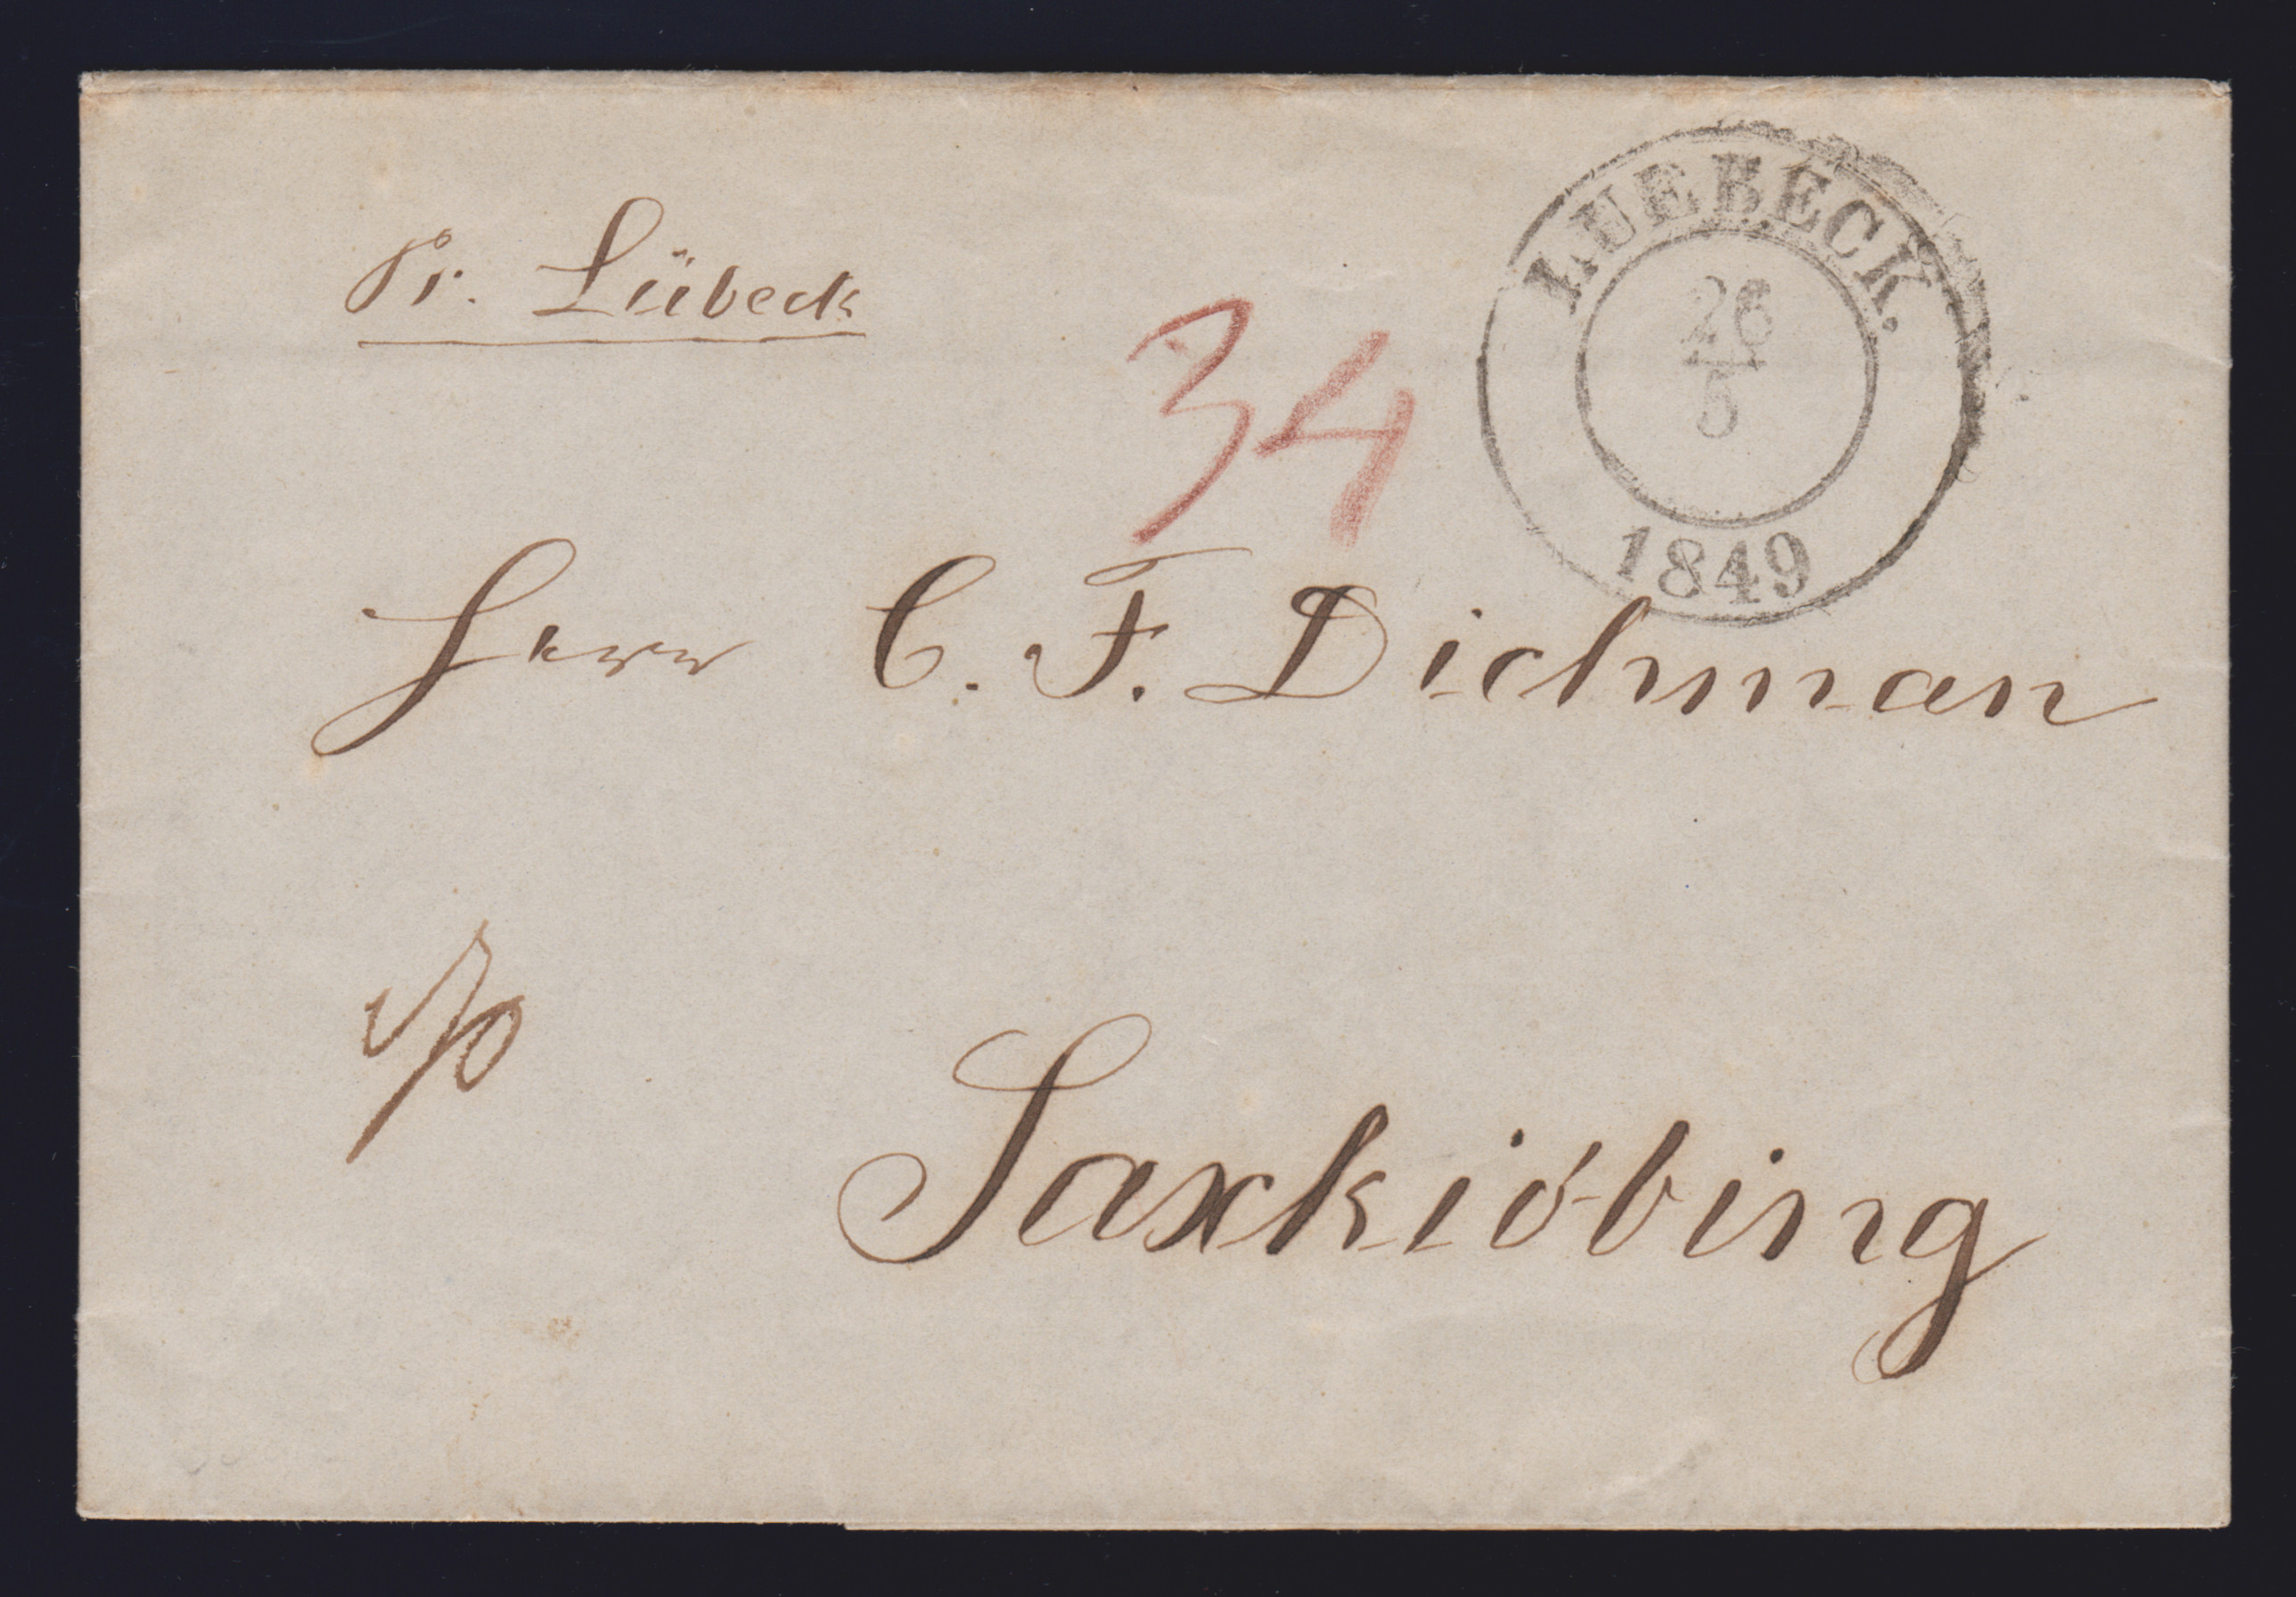 Pr. Lübeck
LUEBECK.
26
5
1849
34
Herrn C. F. Dichman
Saxkióbing